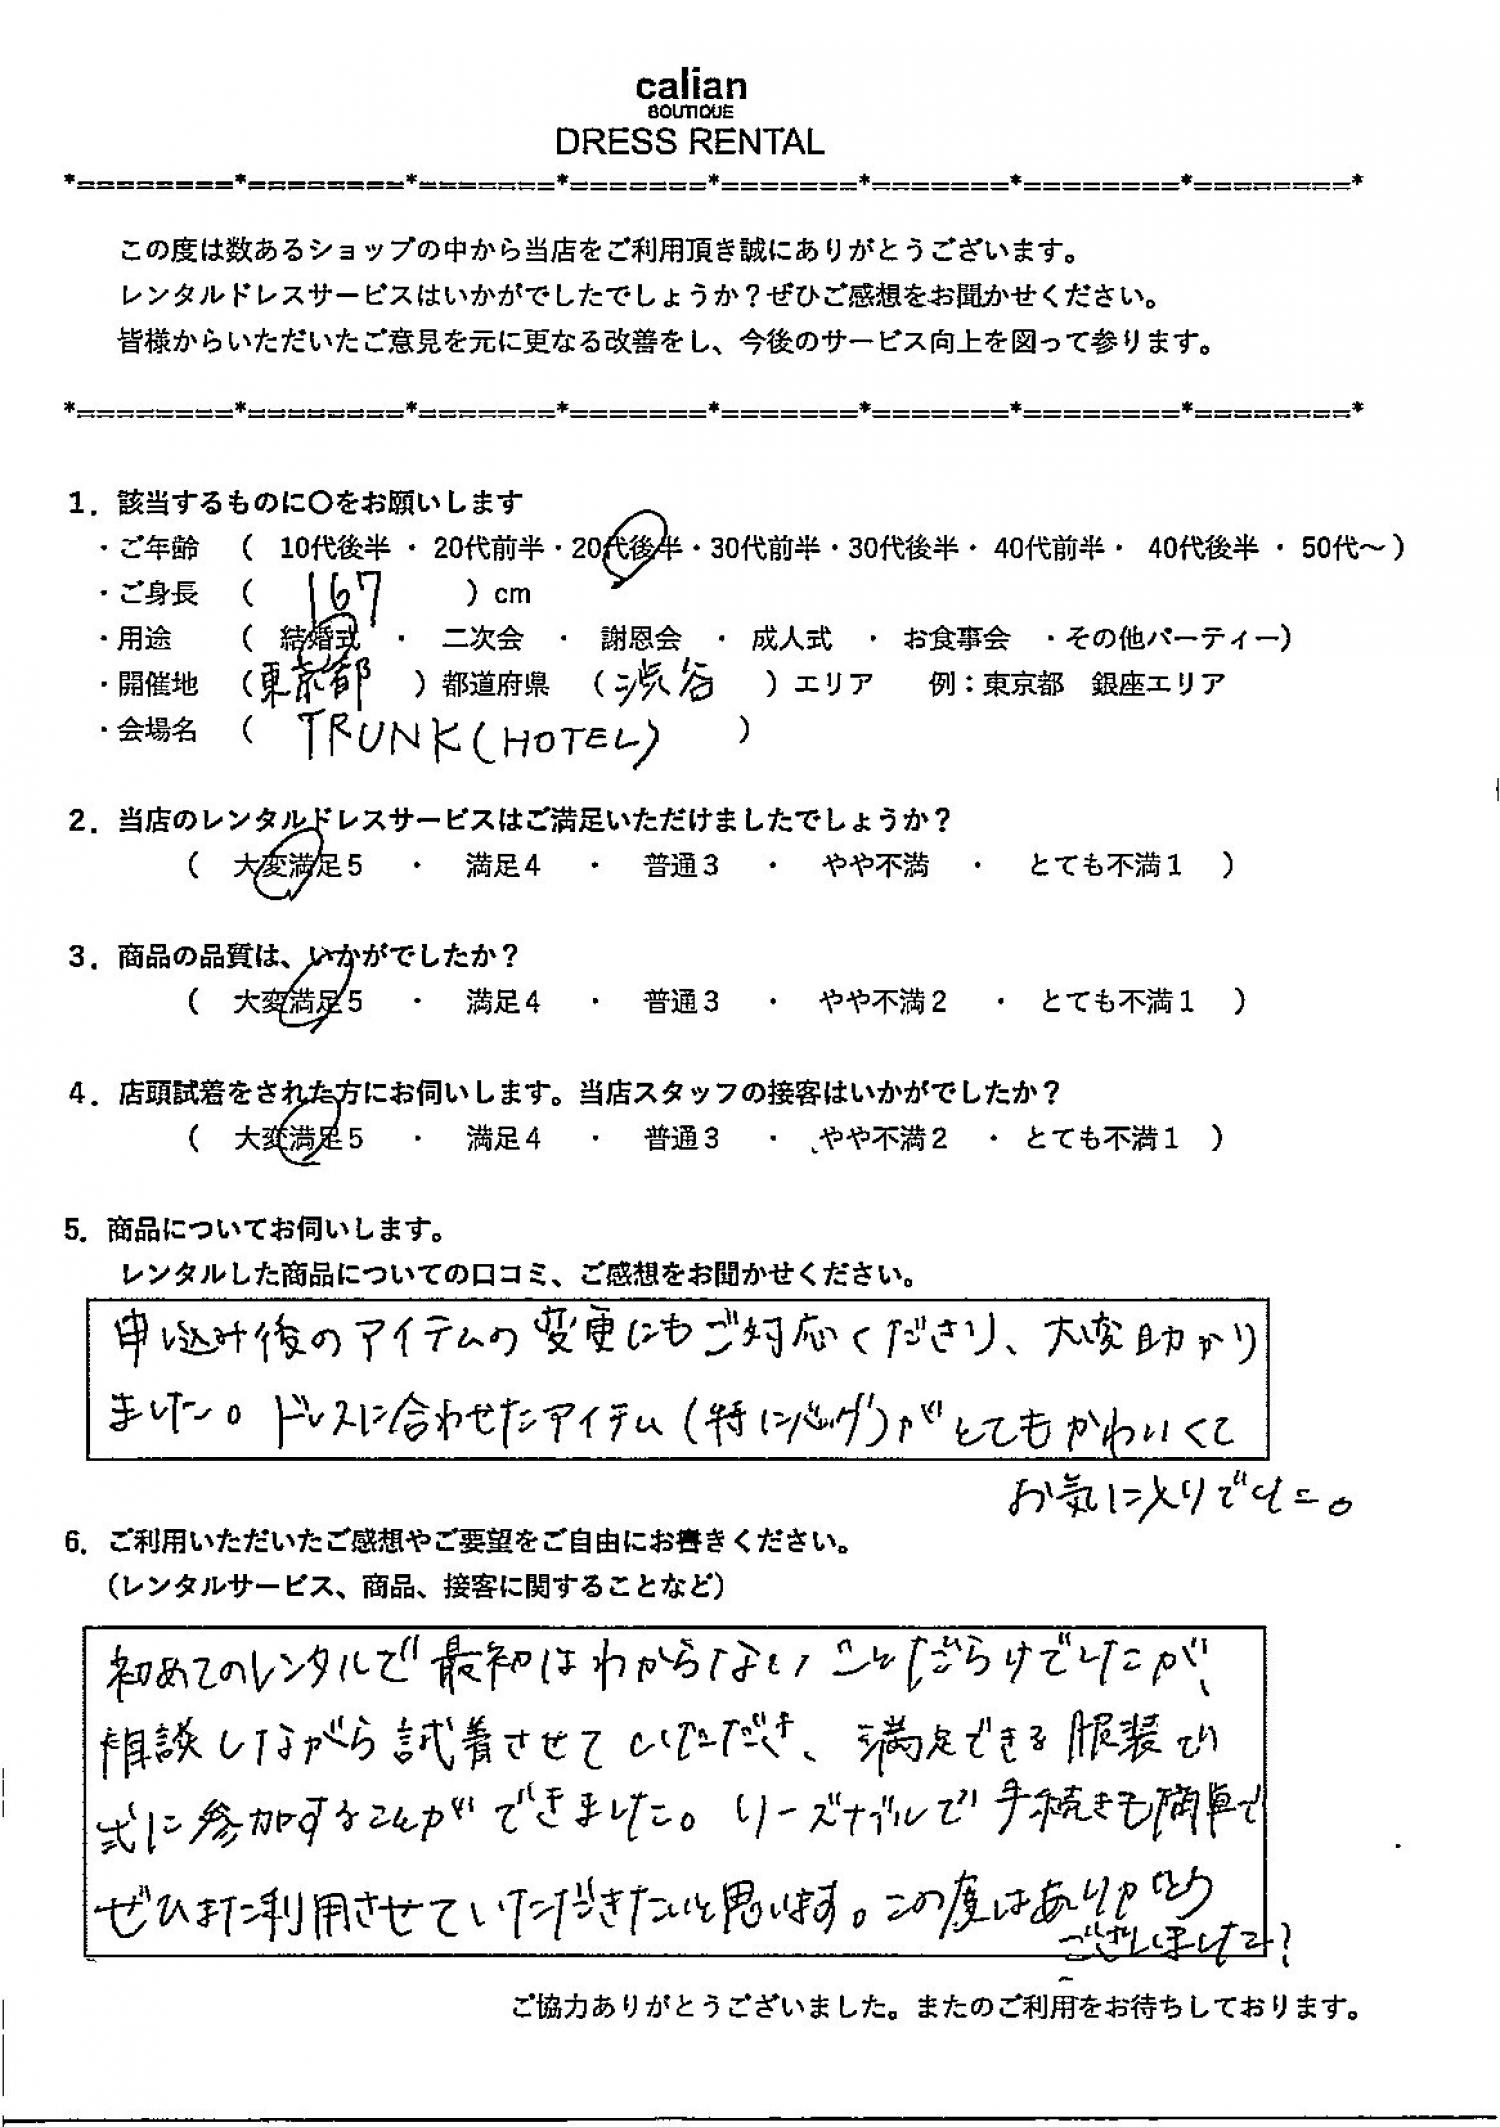 calian
BOUTIQUE
DRESS RENTAL
*========*========*=======*=======*=======*=======*========*========*
この度は数あるショップの中から当店をご利用頂き誠にありがとうございます。
レンタルドレスサービスはいかがでしたでしょうか？ぜひご感想をお聞かせください。
皆様からいただいたご意見を元に更なる改善をし、今後のサービス向上を図って参ります。
*========*========*=======*=======*=======*=======*========*========*
1．該当するものに〇をお願いします
・ご年齢　（　10代後半 ・ 20代前半・20代後半・30代前半・30代後半・ 40代前半・ 40代後半 ・ 50代～）
・ご身長　（　167　）cm
・用途　（　結婚式　・　二次会　・　謝恩会　・　成人式　・　お食事会　・その他パーティー）
・開催地　（東京都　）都道府県　（渋谷　）エリア　　例：東京都　銀座エリア
・会場名　（　TRUNK(HOTEL)　）
2．当店のレンタルドレスサービスはご満足いただけましたでしょうか？
（　大変満足５　・　満足４　・　普通３　・　やや不満　・　とても不満１　）
3．商品の品質は、いかがでしたか？
（　大変満足５　・　満足４　・　普通３　・　やや不満２　・　とても不満１　）
4．店頭試着をされた方にお伺いします。当店スタッフの接客はいかがでしたか？
（　大変満足５　・　満足４　・　普通３　・　やや不満２　・　とても不満１　）
5．商品についてお伺いします。
レンタルした商品についての口コミ、ご感想をお聞かせください。
申し込み後のアイテムの変更にもご対応くださり、大変助かり
ました。ドレスに合わせたアイテム(特にバッグ)がとてもかわいくて
お気に入りでした。
6．ご利用いただいたご感想やご要望をご自由にお書きください。
（レンタルサービス、商品、接客に関することなど）
初めてのレンタルで最初はわからないことだらけでしたが、
相談しながら試着させていただき、満足できる服装で
式に参加することができました。リーズナブルで手続きも簡単で
ぜひまた利用させていただきたいと思います。この度はありがとう
ございました!
ご協力ありがとうございました。またのご利用をお待ちしております。